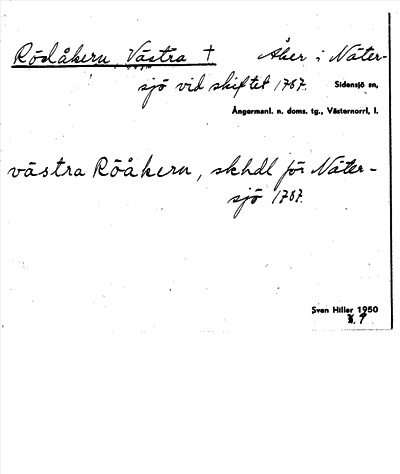 Rödåkern, Västra † Åker i Näter-
sjö vid skiftet 1767. Sidensjö sn,
Ångermanl. n. doms. tg., Västernorrl, l.
västra Röåkern, skhdl för Näter-
sjö 1767.
Sven Hiller 1950